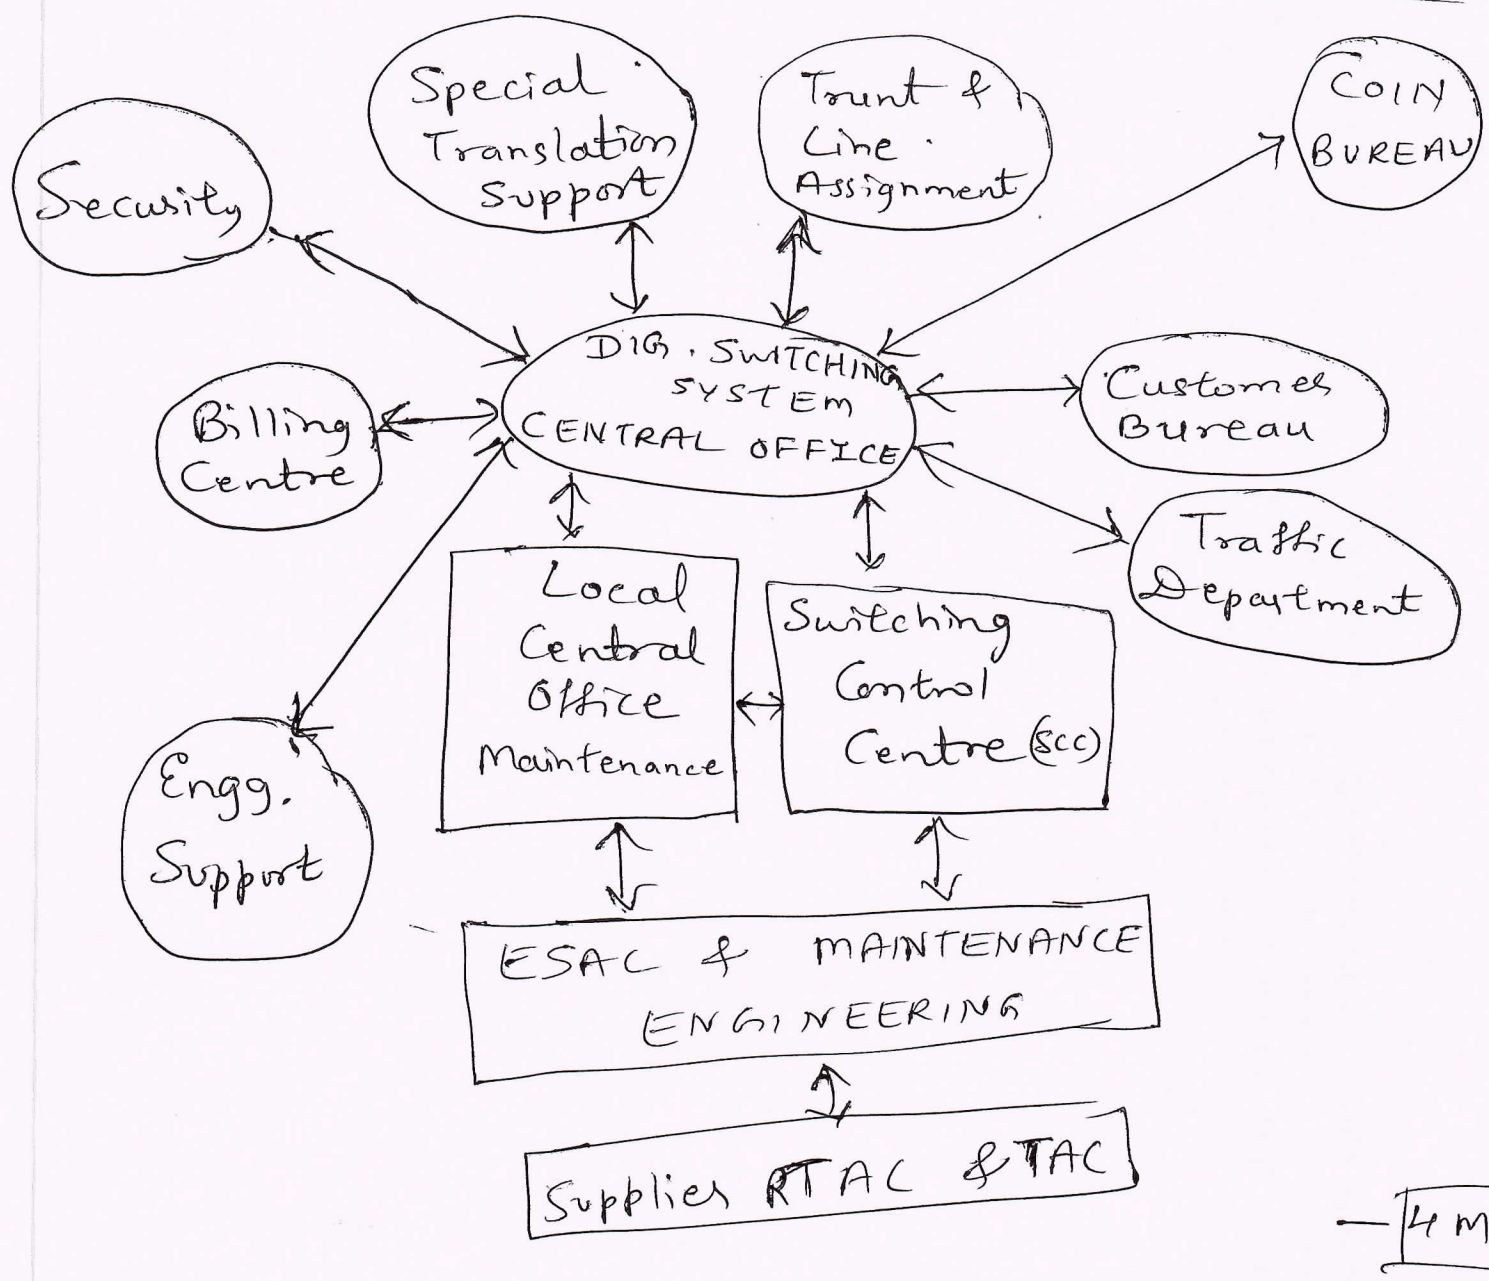 Special
Translation
Support
Trunt &
Line
Assignment
COIN
BUREAU
Security
DIG. SWITCHING
SYSTEM
CENTRAL OFFICE
Billing
Centre
Customer
Bureau
Traffic
Department
Local
Central
Office
Maintenance
Switching
Control
Centre (SCC)
Engg.
Support
ESAC & MAINTENANCE
ENGINEERING
Supplier RTAC & TAC
4 M